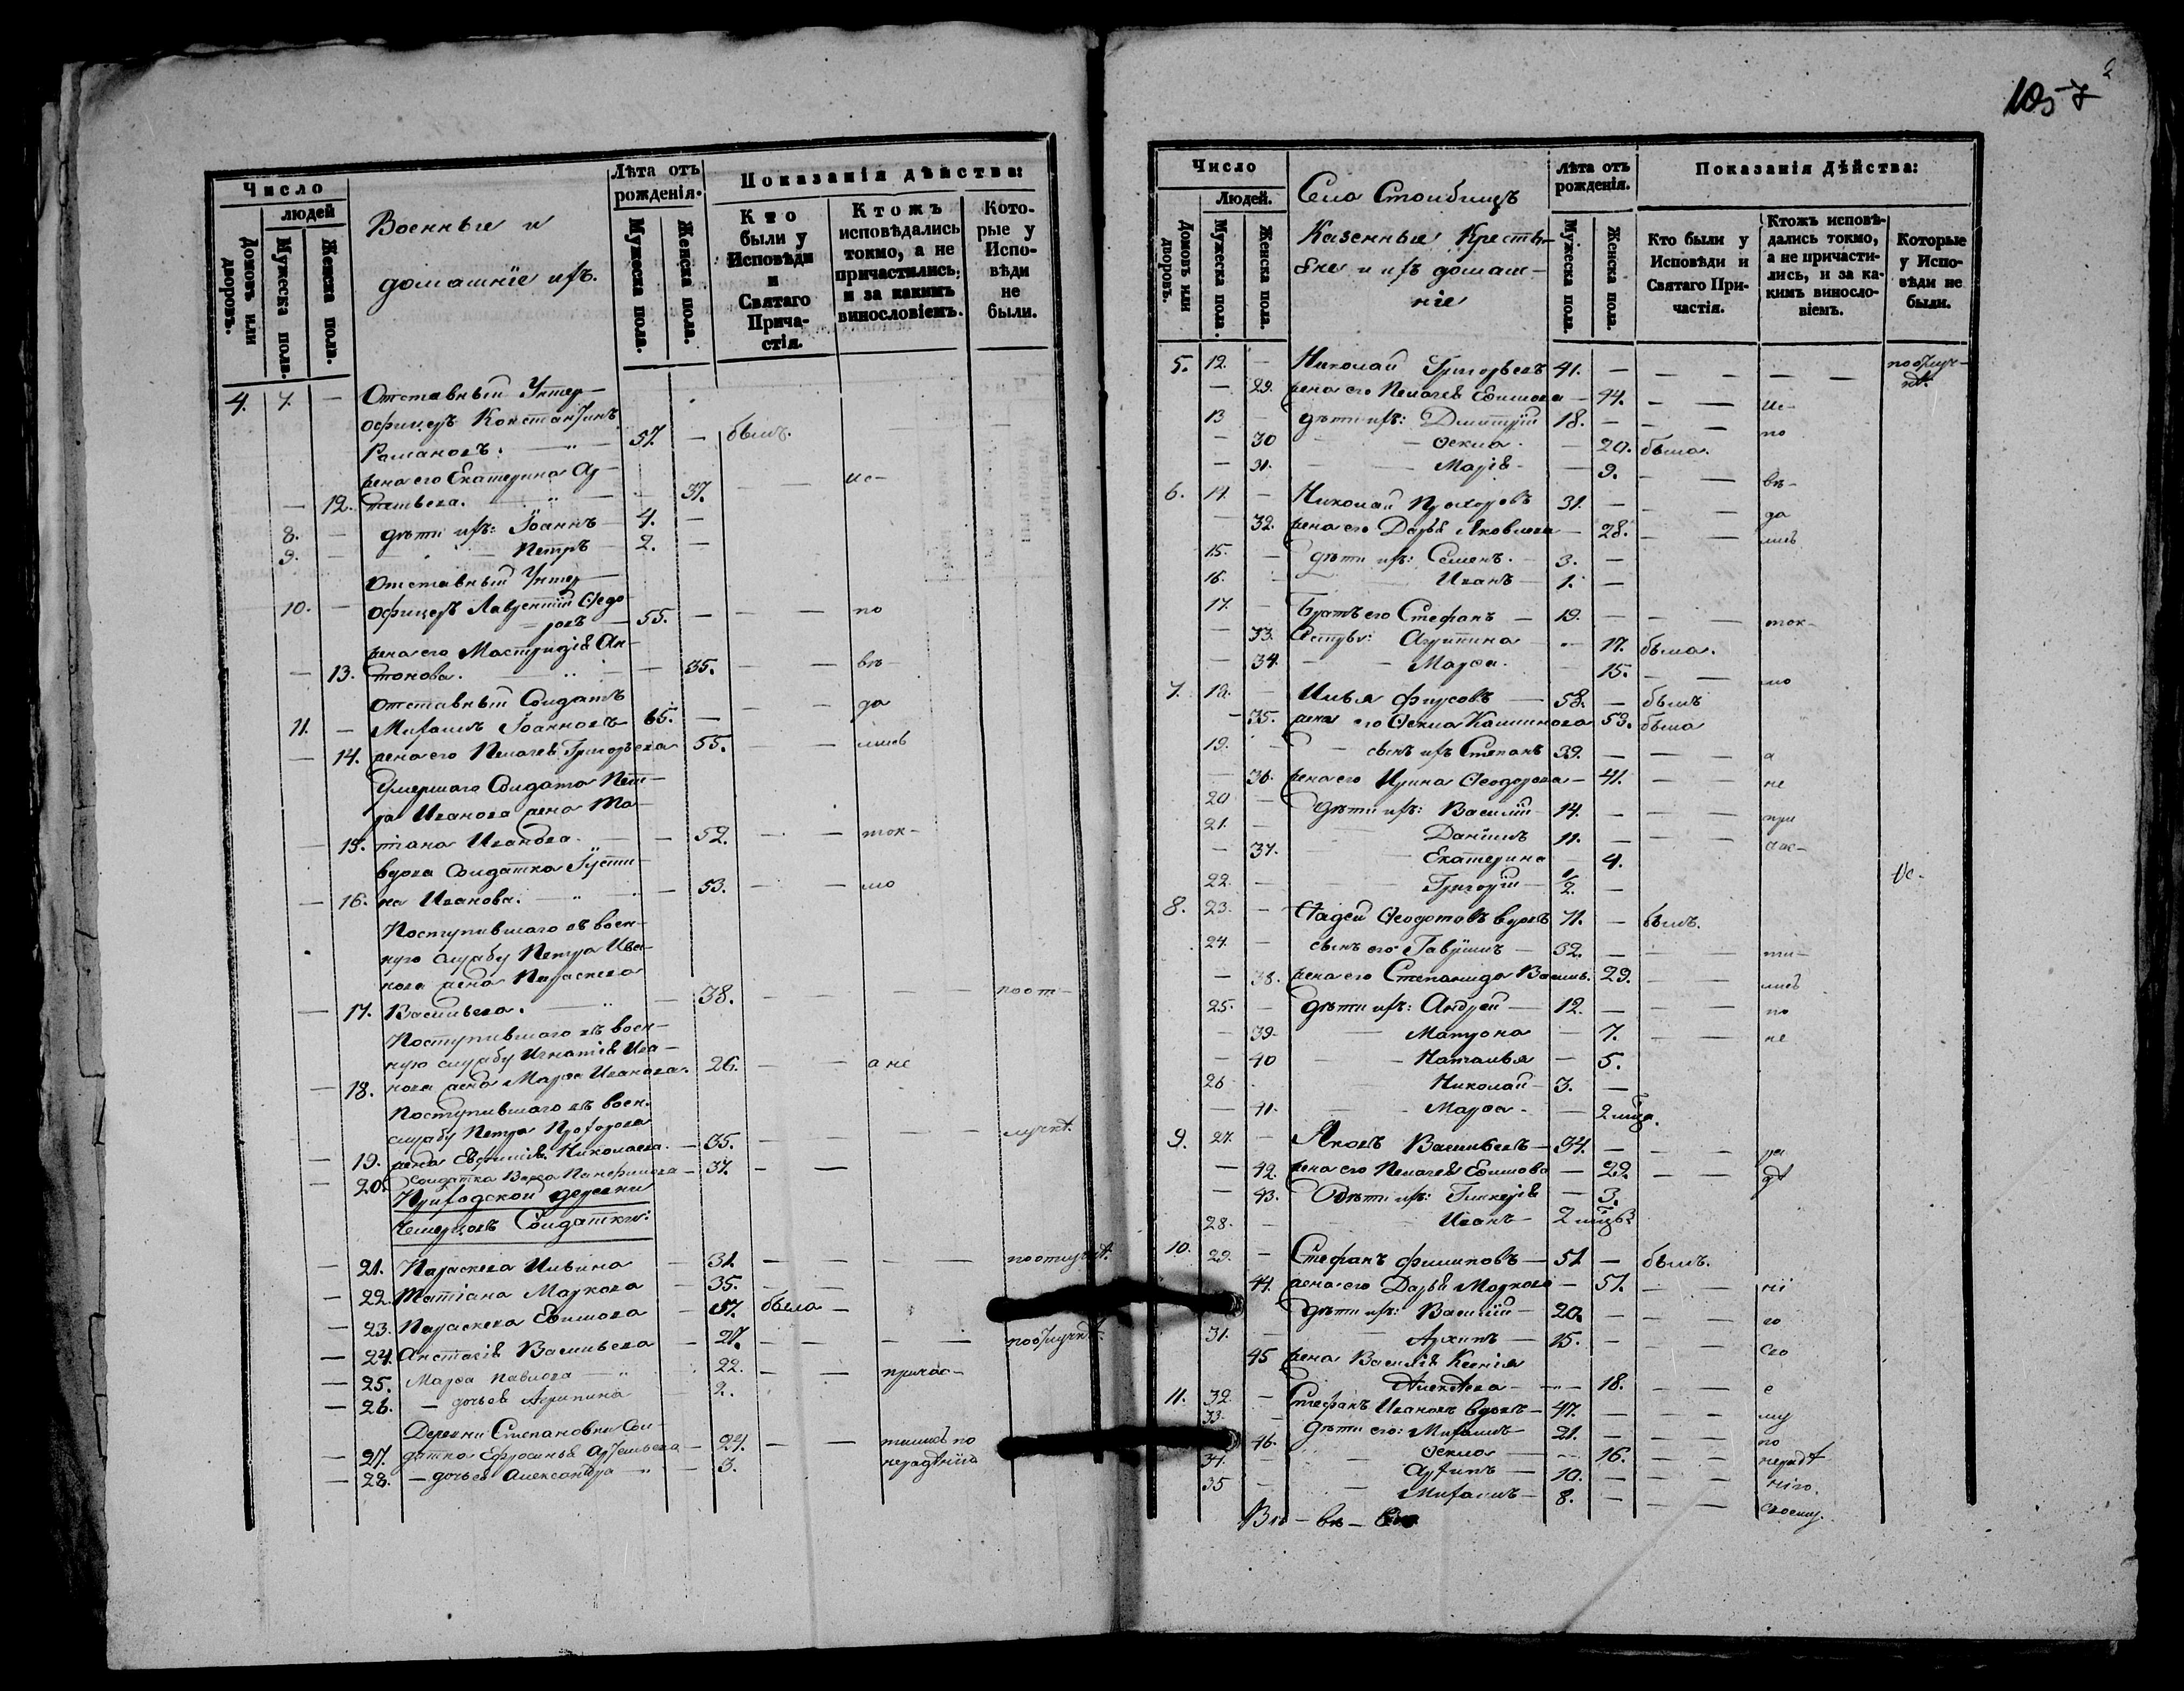 1057
2
Число
людей
Домовъ или дворовъ.
Мужеска пола.
Женска пола.
Военные и
домашніе ихъ.
Лѣта отъ рожденія.
Мужеска пола.
Женска пола.
Показанія дѣйства:
Кто были у Исповѣди и Святаго Прича-стія.
Ктожъ исповѣдались токмо, а не причастились; и за какимъ винословіемъ.
Кото-рые у Испо-вѣди не были.
4. 7. — Отставный Унтер—
офицеръ Константинъ
Романовъ. — 57. — былъ.
жена его Екатерина Ар—
— 12. темьева. — 37. — — ис—
8. — дѣти ихъ: Іоаннъ — 4. —
9. — — Петръ — 2. —
Отставный Унтер—
10. — офицеръ Лаврентій Ѳедо
ровъ — 55. — — — по
жена его Мастридія Ан—
— 13. тонова. — — 35. — — вѣ—
Отставный Солдатъ
11. — Михаилъ Іоанновъ 65. — — — да
— 14. жена его Пелагея Григорьева 55. — — лись
Умершаго Солдата Пет—
ра Иванова жена Та—
— 15. тіана Иванова. — — 52. — — ток—
вдова Солдатка Іусти—
— 16. на Иванова. — — 53. — — мо
Поступившаго въ воен—
ную службу Петра Ива—
нова жена Параскева
— 17. Васильева. — — 38. — — — — по от—
Поступившаго въ воен—
ную службу Игнатія Ива—
— 18. нова жена Марѳа Иванова. 26. — — а не
Поступившаго въ воен.
службу Петра Прохорова
— 19. жена Евфимія Николаева. — 35. — — — — лучкѣ.
— 20. Солдатка Варвара Панфилова — 37. — —
Приходской деревни
Солдатки:
— 21. Параскева Ильина — 31 — — — — по отлучкѣ.
— 22. Татіана Маркова — 35. — —
— 23. Параскева Ефимова — 57. была —
— 24. Анстасія Васильева — 27. — — — — по отлучкѣ
— 25. Марѳа Павлова — 22. — — причас—
— 26. — дочь ея Агрипина 2.
Деревни Степановки Сол—
— 27. датка Ефросинья Артемьева — 24. — — тились по
— 28. — дочь ея Александра — 3. нерадѣнію
Число
Людей.
Домовъ или дворовъ.
Мужеска пола.
Женска пола.
Села Столбищъ
Казенные Крестья—
не и ихъ домаш—
ніе
Лѣта отъ рожденія.
Мужеска пола.
Женска пола.
Показанія Дѣйства:
Кто были у Исповѣди и Святаго При-частія.
Ктожъ исповѣ-дались токмо, а не причасти-лись, и за ка-кимъ винослo-віемъ.
Которые у Испо-вѣди не были.
5. 12. — Николай Григорьевъ 41. — — — — — по отлуч—
кѣ.
— 29. жена его Пелагея Ефимова — 44. — — ис—
13 — дѣти ихъ: Дмитрій 18. — — — по
— 30 — Ѳекла. — 20. была.
— 31. — Марія — 9. — — вѣ—
6. 14. — Николай Прохоровъ 31. — — — да
— 32. жена его Дарья Яковлева — 28. — — лись
15. — дѣти ихъ: Семенъ. — 3. —
16. — Иванъ — 1. —
17. — Братъ его Стефанъ — 19. — — — ток—
— 33. Сестры: Агрипина — 17. была.
— 34. — Марѳа. — 15. — — мо
7. 18. — Илья Фирсовъ — 58. — былъ
— 35. жена его Ѳекла Калинова 53. была
19. — — сынъ ихъ Степанъ 39. — — — а
— 36. жена его Ирина Ѳеодорова — 41. — — не
20 — дѣти ихъ: Василій — 14. — — — при
21. — Даніилъ 11. — — — час—
— 37. — Екатерина — 4.
22. — Григорій — 1/2. —
8. 23. — Ѳадей Ѳеодотовъ вдовъ 71. — былъ.
24. — сынъ его Гавріилъ — 32. — — — ти—
— 38. жена его Степанида Васил. 29. — — лись
25. — дѣти ихъ: Андрей — 12. — — — по
— 39. — Матрона — 7. — — не
— 40 — Наталья — 5.
26 — Николай — 3. —
— 41. — Марѳа — — 2 мѣсца.
9. 27. — Яковъ Васильевъ — 34. — — — ра
— 42. жена его Пелагея Ефимова — 22. — — дѣ
— 43. Дѣти ихъ: Гликерія — 3.
28. — Иванъ — 2 мѣсц.
10. 29. — Стефанъ Филиповъ — 51 — былъ.
44. жена его Дарья Маркова — 51. — — ні
дѣти ихъ: Василій — 20. — — — ю
31. — Архипъ — 15. — — — сво
45 жена Василія Ксенія
Алексѣева — — 18. — — е
11. 32. — Стефанъ Ивановъ вдовъ — 47. — — — му
33. — дѣти его: Михаилъ — 21. — — — по
46. — Ѳекла — — 16. — — нерадѣ
34. — Архипъ — 10. — — — нію.
35 — Михаилъ — 8. — — — своему.